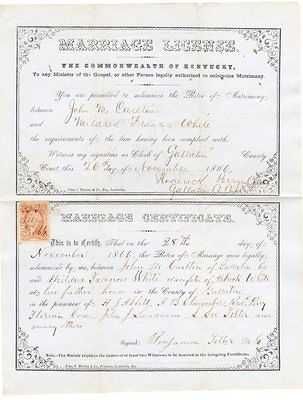 MARRIAGE LICENSE.
THE COMMONWEALTH OF KENTUCKY,
To any Minister of the Gospel, or other Person legally authorized to solemnize Matrimony.
You are permitted to solemnize the Rites of Matrimony
between John W. Carlton
and Mildred Frances White
the requirements of the law having been complied with.
Witness my signature as Clerk of Gallatin County
Court, this 26th day of November 1866
Roderick Perry Clerk
Gallatin
MARRIAGE CERTIFICATE.
This is to Certify, That on the 28th day of
November 1866, the Rites of Marriage were legally
solemnized by me, between John W. Carlton of Gallatin Co
and Mildred Frances White daughter of White
at her father home in the County of Gallatin
in the presence of H J Abbott, A B Chambers,
John J Sanderson, & Geo Teller and
many others
Signed: Benjamin Teller M. G.
Note.—The Statute requires the names of at least two Witnesses to be inserted in the foregoing Certificate.